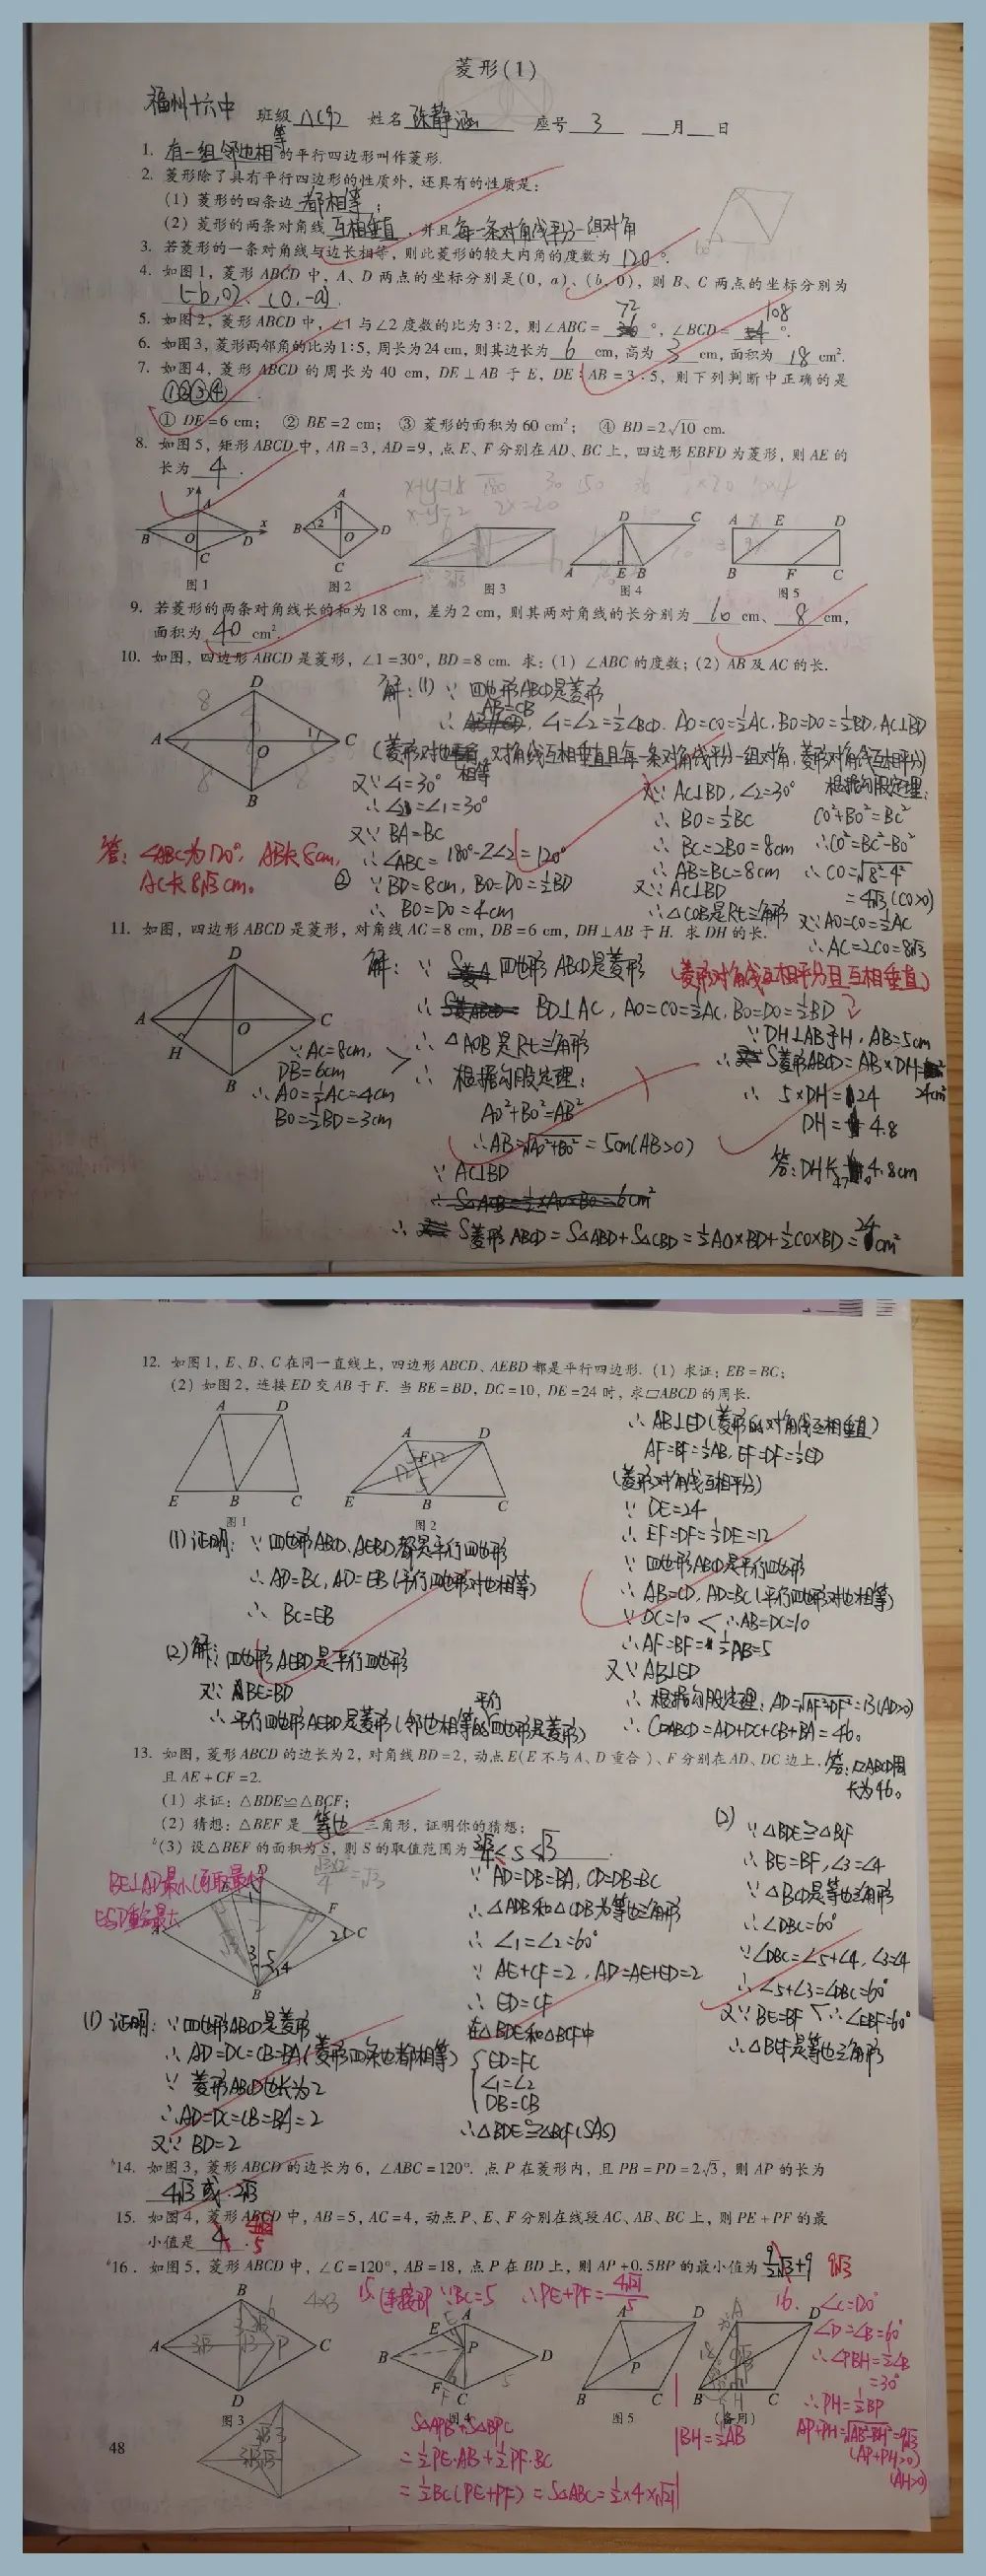 菱形(1)
福州十六中 班级 八(9) 姓名 座号 3 月 日
1. 有一组邻边相等的平行四边形叫作菱形.
2. 菱形除了具有平行四边形的性质外, 还具有的性质是:
(1) 菱形的四条边 都相等 ;
(2) 菱形的两条对角线 互相垂直 , 并且 每一条对角线平分一组对角
3. 若菱形的一条对角线与边长相等, 则此菱形的较大内角的度数为 120 °.
4. 如图1, 菱形 ABCD 中, A、D 两点的坐标分别是(0, a)、(b, 0), 则 B、C 两点的坐标分别为
(-b,0)、(0,-a).
5. 如图2, 菱形 ABCD 中, ∠1 与∠2 度数的比为 3:2, 则∠ABC = 72 °, ∠BCD = 108 °.
6. 如图3, 菱形两邻角的比为1:5, 周长为24 cm, 则其边长为 6 cm, 高为 3 cm, 面积为 18 cm².
7. 如图4, 菱形 ABCD 的周长为 40 cm, DE⊥AB 于 E, DE:AB = 3:5, 则下列判断中正确的是
①②③④ .
① DE=6 cm; ② BE=2 cm; ③ 菱形的面积为60 cm²; ④ BD=2√10 cm.
8. 如图5, 矩形 ABCD 中, AB=3, AD=9, 点 E、F 分别在 AD、BC 上, 四边形 EBFD 为菱形, 则 AE 的
长为 4 .
y A B O D x C
A 1 B 2 O D C
D C A E B
A E D B F C
图1 图2 图3 图4 图5
9. 若菱形的两条对角线长的和为18 cm, 差为2 cm, 则其两对角线的长分别为 10 cm、 8 cm,
面积为 40 cm².
10. 如图, 四边形 ABCD 是菱形, ∠1=30°, BD=8 cm. 求: (1) ∠ABC 的度数; (2) AB 及 AC 的长.
D A O 1 C B
解:(1) ∵ 四边形ABCD是菱形
∴ AB=CB, ∠1=∠2=½∠BCD. AO=CO=½AC, BO=DO=½BD, AC⊥BD
(菱形对边相等, 对角线互相垂直且每一条对角线平分一组对角, 菱形对角线互相平分)
又∵ ∠1=30°
∴ ∠2=∠1=30°
又∵ BA=BC
∴ ∠ABC = 180°-2∠2=120°
② ∵BD=8cm, BO=DO=½BD
∴ BO=DO=4cm
又∵ AC⊥BD, ∠2=30°
∴ BO=½BC
∴ BC=2BO=8cm
∴ AB=BC=8cm
又∵ AC⊥BD
∴△COB是Rt三角形
根据勾股定理:
CO²+BO²=BC²
∴CO²=BC²-BO²
∴ CO=√8²-4²
=4√3 (CO>0)
又∵AO=CO=½AC
∴AC=2CO=8√3
答: ∠ABC为120°, AB长8cm,
AC长8√3cm。
11. 如图, 四边形 ABCD 是菱形, 对角线 AC=8 cm, DB=6 cm, DH⊥AB 于 H. 求 DH 的长.
D A O C H B
解: ∵ 四边形ABCD是菱形 (菱形对角线互相平分且互相垂直)
∴ BD⊥AC, AO=CO=½AC, BO=DO=½BD
∴ △AOB是Rt三角形
∵AC=8cm,
DB=6cm
∴AO=½AC=4cm
BO=½BD=3cm
∴ 根据勾股定理:
AO²+BO²=AB²
∴AB=√AO²+BO²=5cm(AB>0)
∵ AC⊥BD
∴ S菱形ABCD = S△ABD+S△CBD = ½AO×BD+½CO×BD = 24cm²
∵DH⊥AB于H, AB=5cm
∴ S菱形ABCD=AB×DH=24cm²
∴ 5×DH=24
DH=4.8
答:DH长4.8cm
12. 如图1, E、B、C 在同一直线上, 四边形 ABCD、AEBD 都是平行四边形. (1) 求证: EB=BC;
(2) 如图2, 连接 ED 交 AB 于 F. 当 BE=BD, DC=10, DE=24 时, 求▱ABCD 的周长.
A D E B C
图1
A D F 12 12 E B C
图2
(1)证明: ∵ 四边形ABCD、AEBD都是平行四边形
∴ AD=BC, AD=EB(平行四边形对边相等)
∴ BC=EB
(2)解: 四边形AEBD是平行四边形
又∵ BE=BD
∴ 平行四边形AEBD是菱形(邻边相等的平行四边形是菱形)
∴ AB⊥ED(菱形的对角线互相垂直)
AF=BF=½AB, EF=DF=½ED
(菱形对角线互相平分)
∵ DE=24
∴ EF=DF=½DE=12
∵ 四边形ABCD是平行四边形
∴ AB=CD, AD=BC(平行四边形对边相等)
∵ DC=10 ∴AB=DC=10
∴AF=BF=½AB=5
又∵ AB⊥ED
∴ 根据勾股定理: AD=√AF²+DF²=13(AD>0)
∴ C▱ABCD=AD+DC+CB+BA=46。
答: ▱ABCD周
长为46。
13. 如图, 菱形 ABCD 的边长为2, 对角线 BD=2, 动点 E(E 不与 A、D 重合)、F 分别在 AD、DC 边上,
且 AE+CF=2.
(1) 求证: △BDE≌△BCF;
(2) 猜想: △BEF 是 等边 三角形, 证明你的猜想;
(3) 设△BEF 的面积为 S, 则 S 的取值范围为 3√3/4≤S<√3 .
E与D重合最大
(1) 证明: ∵四边形ABCD是菱形
∴ AD=DC=CB=BA(菱形四条边都相等)
∵ 菱形ABCD边长为2
∴AD=DC=CB=BA=2
又∵ BD=2
∵ AD=DB=BA, CD=DB=BC
∴△ADB和△CDB为等边三角形
∴ ∠1=∠2=60°
∵ AE+CF=2, AD=AE+ED=2
∴ ED=CF
在△BDE和△BCF中
ED=FC
∠1=∠2
DB=CB
∴△BDE≌△BCF(SAS)
(2)
∵ △BDE≌△BCF
∴ BE=BF, ∠3=∠4
∵ △BCD是等边三角形
∴ ∠DBC=60°
∵∠DBC=∠5+∠4, ∠3=∠4
∴ ∠5+∠3=∠DBC=60°
又∵ BE=BF ∴∠EBF=60°
∴△BEF是等边三角形
14. 如图3, 菱形 ABCD 的边长为6, ∠ABC=120°. 点 P 在菱形内, 且 PB=PD=2√3, 则 AP 的长为
4√3 或 2√3
15. 如图4, 菱形 ABCD 中, AB=5, AC=4, 动点 P、E、F 分别在线段 AC、AB、BC 上, 则 PE+PF 的最
小值是 4 .
16. 如图5, 菱形 ABCD 中, ∠C=120°, AB=18, 点 P 在 BD 上, 则 AP+0.5BP 的最小值为 9/2√3+9 9√3
15. 连接BP ∵BC=5 ∴PE+PF=4√21/5
16. ∠C=120°
∠D=∠B=60°
∴∠PBH=½∠B
=30°
∴PH=½BP
AP+PH=√AB²-BH²=9√3
(AP+PH>0)
(AH>0)
BH=½AB
图3 图4 图5 (备用)
S△APB+S△BPC
=½PE·AB+½PF·BC
=½BC(PE+PF)=S△ABC=½×4×√21
48